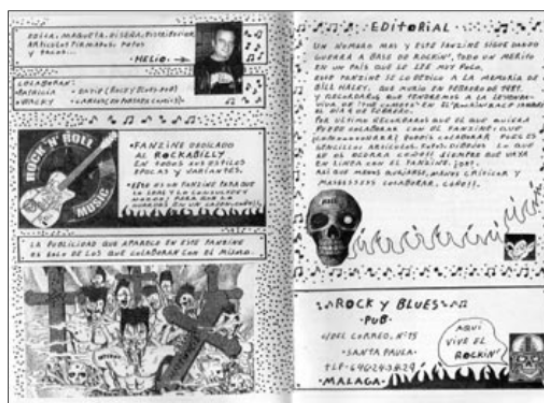 EDITA, MAQUETA, DISEÑA, DISTRIBUYE,
ARTICULOS FIRMADOS, FOTOS
Y PACOS...
-HELIO.→
COLABORAN:
•PATRICIA •DAVID (ROCK Y BLUES PUB)
ROCK'N'ROLL
MUSIC
•FANZINE DEDICADO
AL ROCKABILLY
EN TODOS SUS ESTILOS
EPOCAS Y VARIANTES.
•ESTO ES UN FANZINE PARA QUE
LO LEAS Y LO CONSULTES Y
LA PUBLICIDAD QUE APARECE EN ESTE FANZINE
ES SOLO DE LOS QUE COLABORAN CON EL MISMO.
EDITORIAL
UN NUMERO MAS Y ESTE FANZINE SIGUE DANDO
GUERRA A BASE DE ROCKIN', TODO UN MERITO
EN UN PAÍS QUE SE LEE MUY POCO.
ESTE FANZINE SE LO DEDICO A LA MEMORIA DE
BILL HALEY, QUE MURIO EN FEBRERO DE 1981
Y RECORDAD, QUE TENDREMOS A LA LEYENDA
EL DIA 12 DE FEBRERO.
POR ULTIMO RECORDAROS QUE EL QUE QUIERA
PUEDE COLABORAR CON EL FANZINE: QUE
PODEIS COLABORAR PUES ES
SENCILLO: ARTICULOS, FOTOS, DIBUJOS LO QUE
SE OS OCURRA COÑO!!! SIEMPRE QUE VAYA
EN LINEA CON EL FANZINE.
ASI QUE MENOS QUEJARSE, MENOS CRITICAR Y
MASSSSSSS COLABORAR, COÑO!!.
•ROCK Y BLUES•
-PUB-
C/DEL CORREO, Nº15
-SANTA PAULA-
-MALAGA-
AQUI
VIVE EL
ROCKIN'